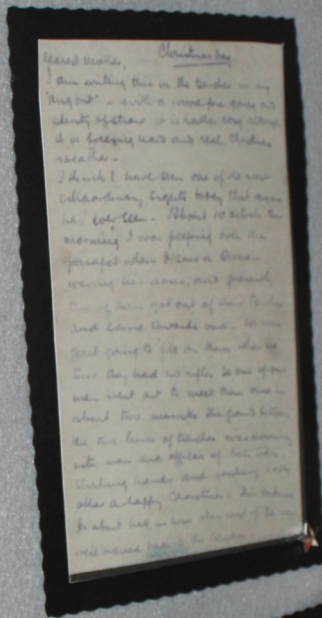 Christmas Day
Dearest Mother,
I am writing this in the trenches in my
"dug out" - with a wood fire going and
plenty of straw it is rather cosy although
it is freezing hard and real Christmas
weather -
I think I have seen one of the most
extraordinary sights today that anyone
has ever seen - About 10 o'clock this
morning I was peeping over the
parapet when I saw a German
waving his arms, and presently
two of them got out of their trenches
and came towards ours - We were
just going to fire on them when we
saw they had no rifles so one of our
men went out to meet them and in
about two minutes the ground between
the two lines of trenches was swarming
with men and officers of both sides
shaking hands and wishing each
other a happy Christmas - This continued
for about half an hour when most of the men
were ordered back to the trenches